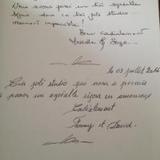 Nous avons passé un très agréable
séjour dans ce très joli studio
vraiment impeccable !
Bien cordialement
Le 03 juillet
Très joli studio qui nous a permis
de passer un agréable séjour en amoureux
Cordialement
Fanny et David